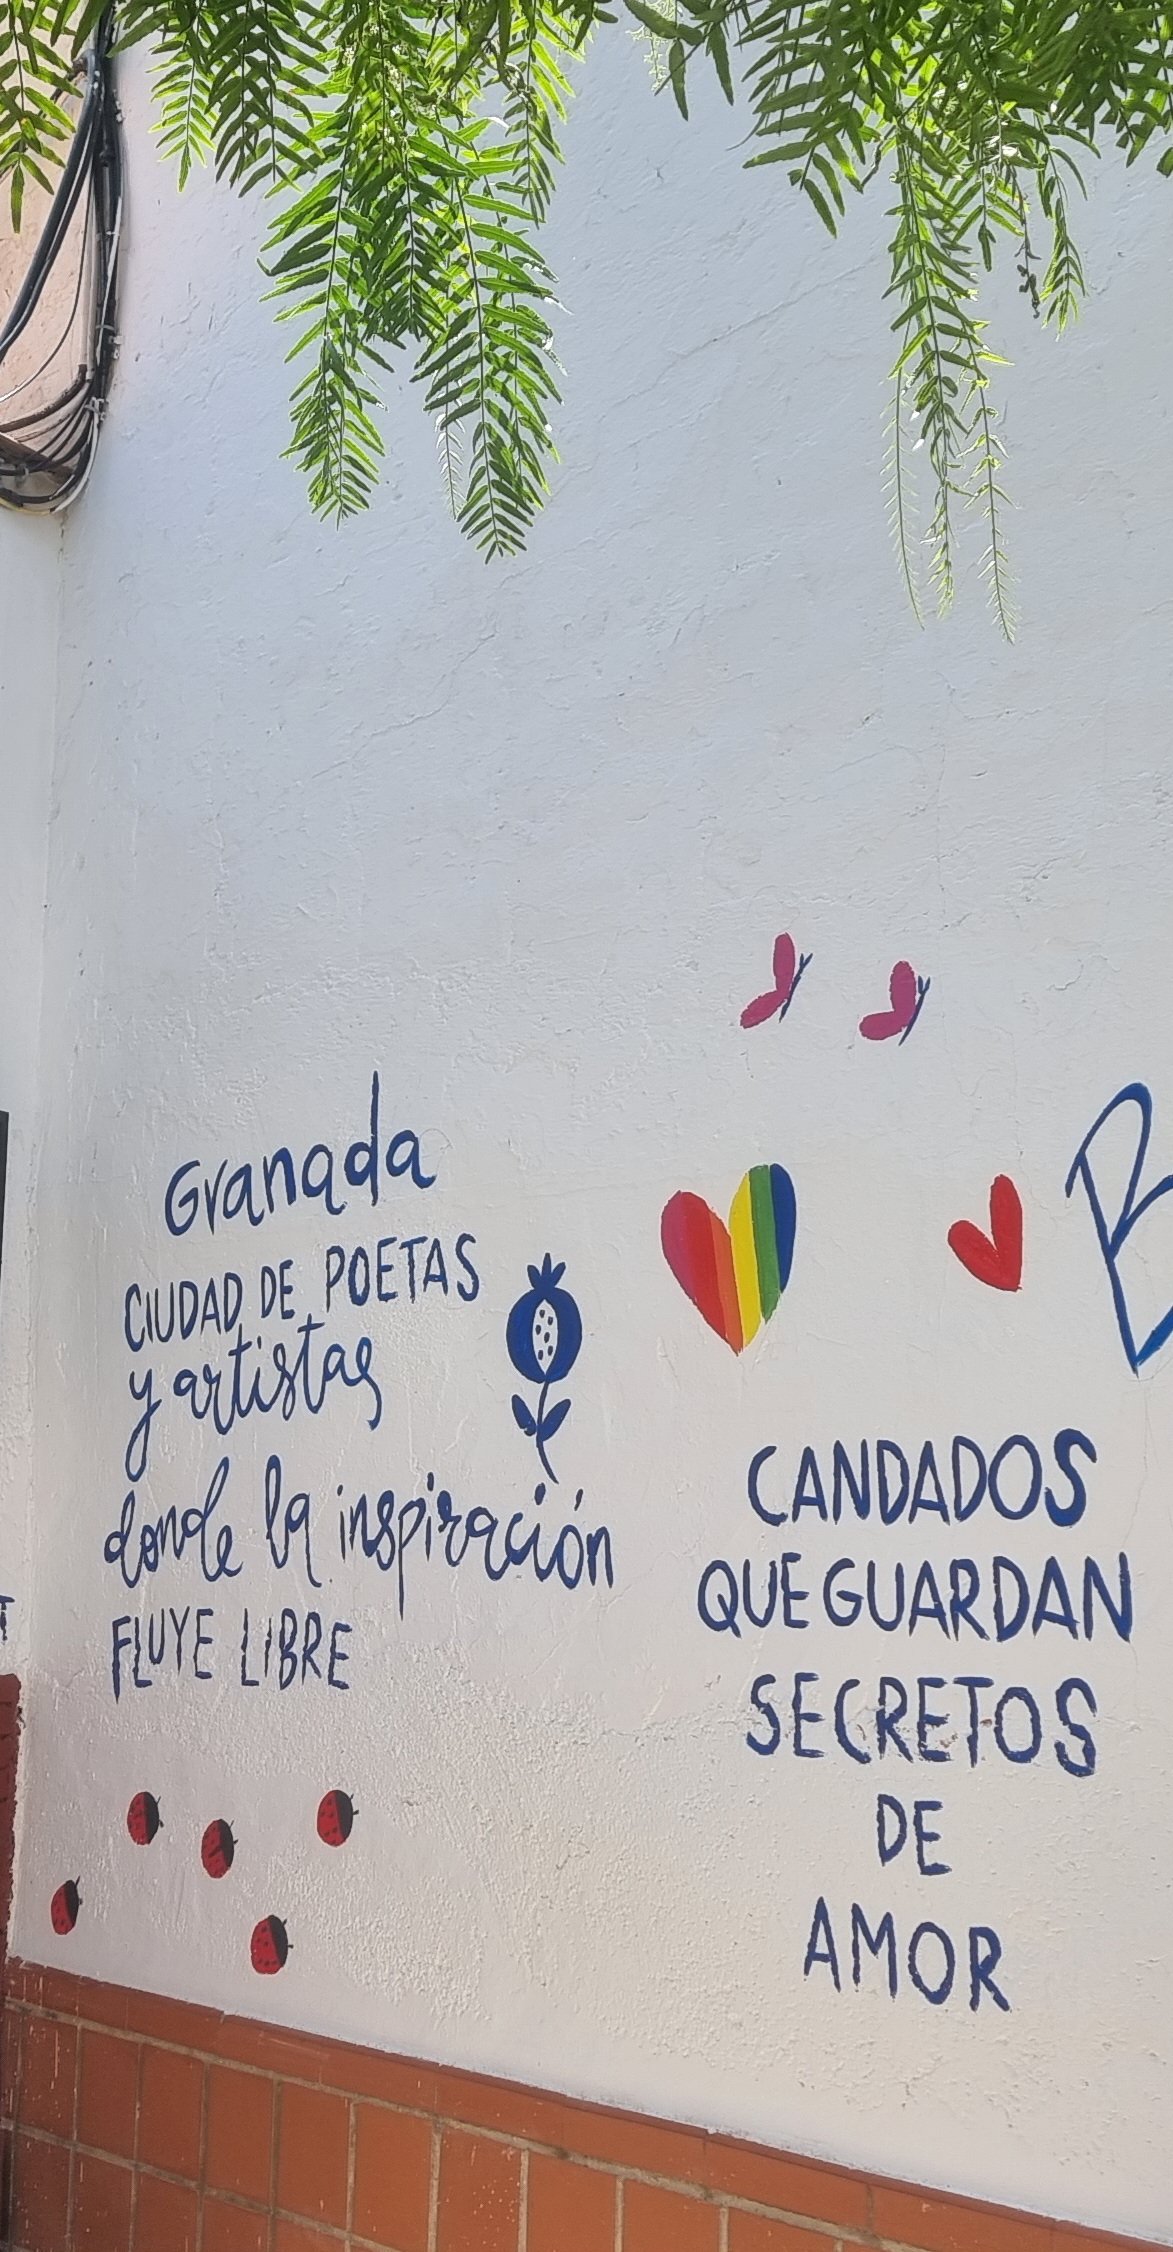 Granada
CIUDAD DE POETAS
y artistas
donde la inspiración
FLUYE LIBRE
B
CANDADOS
QUE GUARDAN
SECRETOS
DE
AMOR